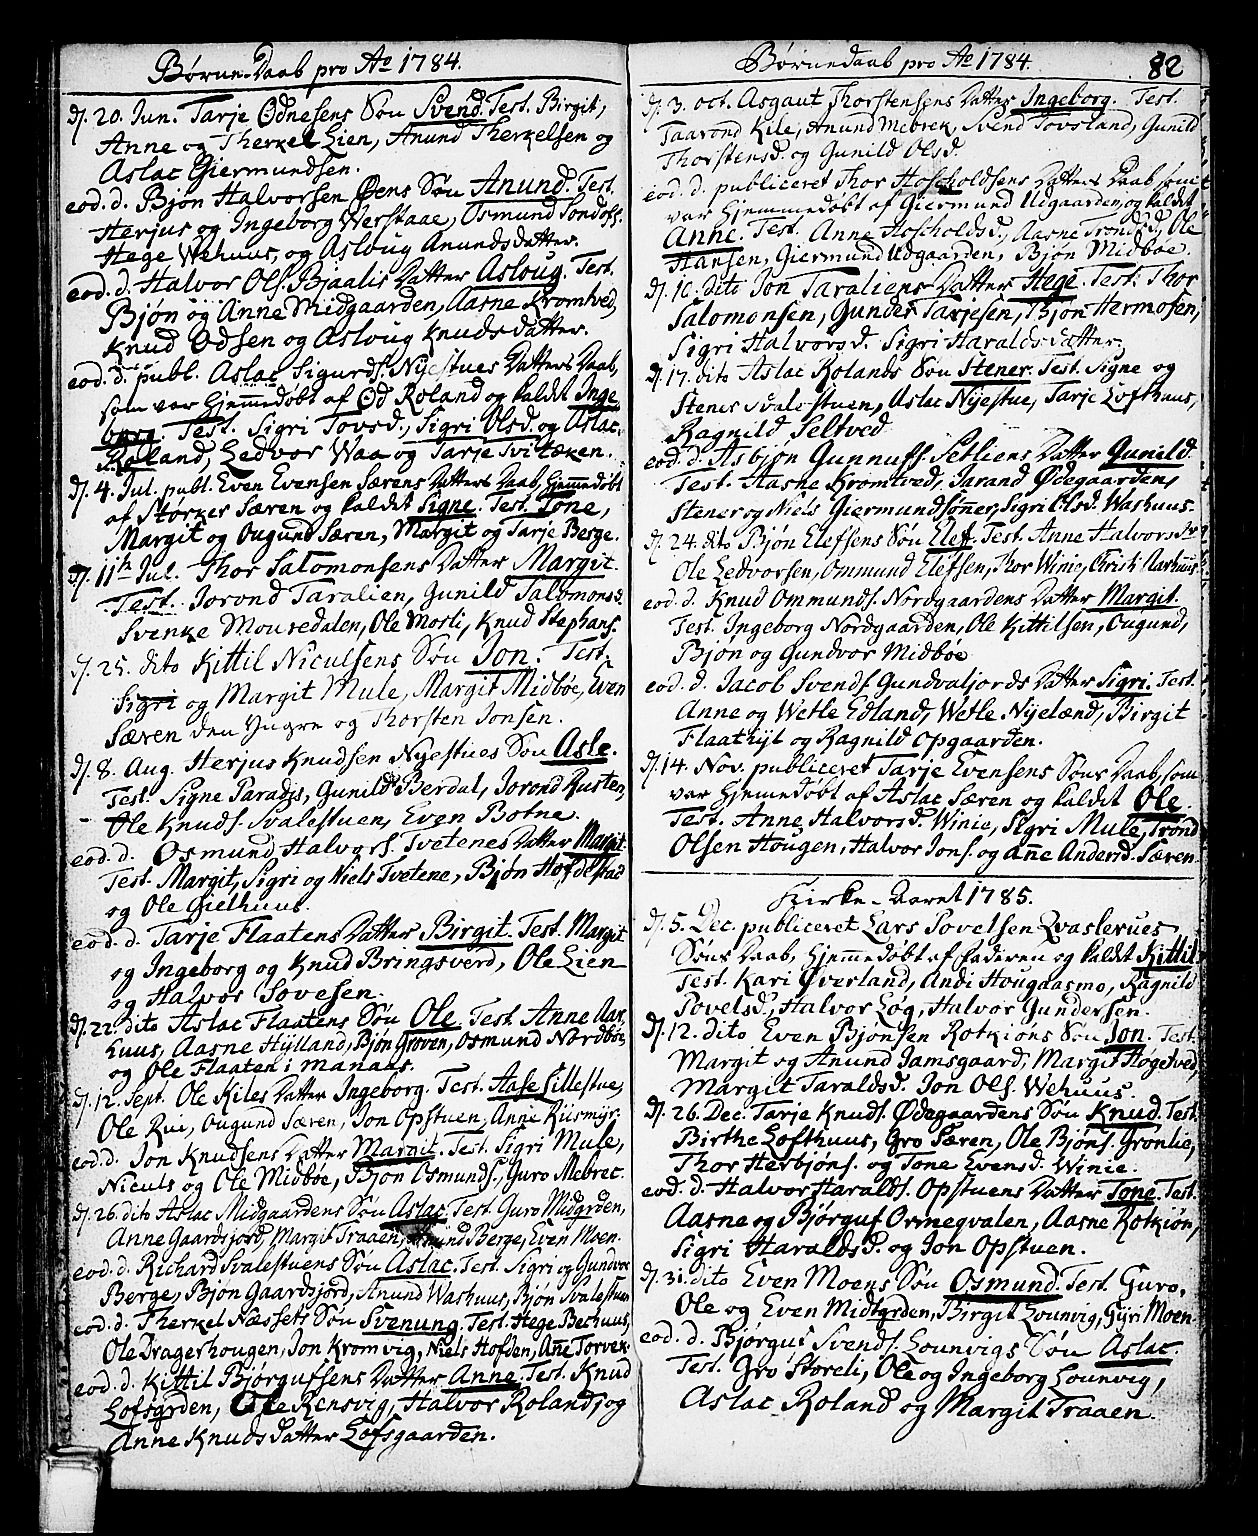 Børne-Daab pro Ao 1784.
d. 20. Jun. Tarje Ødnesens Søn Svend. Test. Birgit,
Anne og Therkel Lien, Anund Therkelsen og
Aslac Giermundsen.
eod. d. Bjøn Halvorsen Øens Søn Anund. Test.
Herjus og Ingeborg Werstaae, Osmund Sondøss.
Hege Wehuus, og Asloug Anundsdatter.
eod. d. Halvor Ols. Bjaalis Datter Asloug. Test.
Bjøn og Anne Midgaarden, Aasne Kromtved,
Knud Odsen og Asloug Knudsdatter.
eod. d. publ. Aslac Sigurds. Nijestues Datters Daab,
som var hjemmedøbt af Od Roland og kaldet Inge
borg. Test. Sigri Tovsd., Sigri Olsd. og Aslac
Roland, Ledvor Waa og Tarje Svitæken.
d. 4. Jul. publ. Even Evensen Særens Datters Daab, hjemmedøbt
af Størker Særen og kaldet Signe. Test. Tone,
Margit og Ougund Særen, Margit og Tarje Berge.
d. 11te Jul. Thor Salomonsens Datter Margit.
Test. Jorond Taralien, Gunild Salomonsd.
Svenke Mousedalen, Ole Mosli, Knud Stephans.
d. 25. dito Kittil Niculsens Søn Jon. Test.
Sigri og Margit Mule, Margit Midbøe, Even
Særen den Yngre og Thorsten Jonsen.
d. 8. Aug. Herjus Knudsen Nyestues Søn Asle.
Test. Signe Paradis, Gunild Berdal, Jorond Rusten,
Ole Knuds. Svalestuen, Even Botne.
eod. d. Osmund Halvors. Tvetenes Datter Margit.
Test. Margit, Sigri og Niels Tvetene, Bjøn Hofdestad
og Ole Gielhuus.
eod. d. Tarje Flaatens Datter Birgit. Test. Margit
og Ingeborg og Knud Bringsverd, Ole Lien
og Halvor Tovesen.
d. 22. dito Aslac Flaatens Søn Ole. Test. Anne Aar,
huus, Aasne Hylland, Bjøn Groven, Osmund Nordbøe,
og Ole Flaaten i Manaas.
d. 12. Sept. Ole Kiles Datter Ingeborg. Test. Aase Lillestue,
Ole Rui, Ougund Særen, Jon Opstuen, Anne Riismyr.
eod. d. Jon Knudsens Datter Margit. Test. Sigri Mule,
Niculs og Ole Midbøe, Bjøn Osmunds., Guro Mebrec.
d. 26. dito Aslac Midgaardens Søn Aslac. Test. Guro Midgrden,
Anne Gaardsjord, Margit Traaen, Anund Berge, Even Moen.
eod. d. Richard Svalestuens Søn Aslac. Test. Sigri og Gundvor
Berge, Bjøn Gaardsjord, Anund Washuus, Bjøn Svalestuen
eod. d. Therkel Næssets Søn Svenung. Test. Hege Bechuus,
Ole Dragerhougen, Jon Kromvig, Niels Hofden, Anne Torvek
eod. d. Kittil Bjørgufsens Datter Anne. Test. Knud
Lofsgrden, Ole Rensvig, Halvor Roland, og
Anne Knudsdatter Lofsgaarden.
Børnedaab pro Ao 1784. 82
d. 3. oct. Asgaut Thorstensens Datter Ingeborg. Test.
Taarond Kile, Anund Mebrek, Svend Tovsland, Gunild
Thorstensd. og Gunild Olsd.
eod. d. publiceret Thor Hoscholdsens Datters Daab som
var hjemmedøbt af Giermund Udgaarden, og kaldet
Anne. Test. Anne Hoscholdsd., Aasne Trondsd., Ole
Hansen, Giermund Udgaarden, Bjøn Midbøe
d. 10. dito Jon Taraliens Datter Hege. Test. Thor
Salomonsen, Gunder Tarjesen, Bjøn Hermosen,
Sigri Halvorsd. Sigri Haraldsdatter.
d. 17. dito Aslac Rolands Søn Stener. Test. Signe og
Stener Svalestuen, Aslac Nijestue, Tarje Lofthuus,
Ragnild Seltved
eod. d. Asbjøn Gunnufs. Setliens Datter Gunild.
Test. Aasne Kromtved, Jarand Ødegaarden,
Stener og Niels Giermundsønner, Sigri Olsd. Washuus.
d. 24. dito Bjøn Elefsens Søn Elef. Test. Anne Halvorsdr
Ole Ledvorsen, Ommund Elefsen, Thor Winie, Christi Aarhuus
eod. d. Knud Ommunds. Nordgaardens Datter Margit.
Test. Ingeborg Nordgaarden, Ole Kittilsen, Ougund,
Bjøn og Gundvor Midbøe
eod. d. Jacob Svends. Gundvaljords Datter Sigri. Test.
Anne og Wetle Edland, Wetle Nijelænd, Birgit
Flaatryt og Ragnild Opgaarden.
d. 14. Nov. publiceret Tarje Evensens Søns Daab, som
var hjemmedøbt af Aslac Særen og kaldet Ole.
Test. Anne Halvorsd. Winie, Sigri Mule, Trond
Olsen Hougen, Halvor Jons. og Anne Andersd. Særen.
Kirke-Aaret 1785.
d. 5. Dec. publiceret Lars Povelsen Qvaslerues
Søns Daab, hjemmedøbt af Faderen og kaldet Kittil
Test. Kari Øverland, Andi Hougaasmo, Ragnild
Povelsd., Halvor Løg, Halvor Gundersen.
d. 12. dito Even Bjønsen Rotkiøns Søn Jon. Test.
Margit og Anund Jamsgaard, Margit Hogetved,
Margit Taraldsd. Jon Ols. Wehuus.
d. 26. Dec. Tarje Knuds. Ødegaardens Søn Knud. Test.
Birthe Lofthuus, Gro Særen, Ole Bjøns. Grønlie,
Thor Herbjøns. og Tone Evensd. Winie.
eod. d. Halvor Haralds. Opstuens Datter Tone. Test.
Aasne og Bjørguf Ormegvalen, Aasne Rotkiøn,
Sigri Haraldsd. og Jon Opstuen.
d. 31. dito Even Moens Søn Osmund. Test. Guro,
Ole og Even Midtgrden, Birgit Lounvig, Gyri Moen.
eod. d. Bjørgus Svends. Lounvigs Søn Aslac.
Test. Gro Storeli, Ole og Ingeborg Lounvig,
Aslac Roland og Margit Traaen.